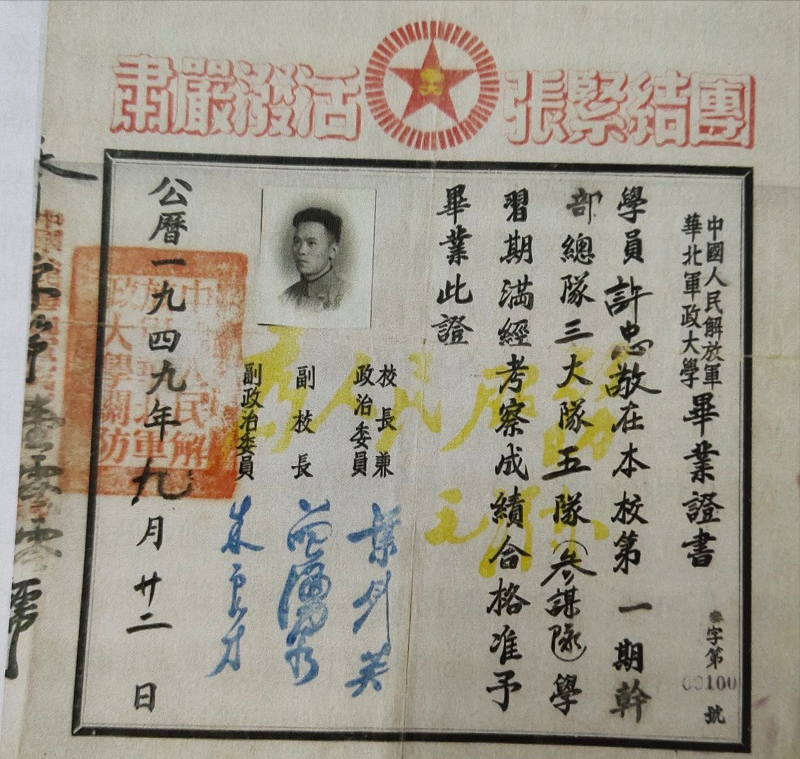 團結緊張 活潑嚴肅
中國人民解放軍
華北軍政大學
畢業證書
參字第00100號
學員許忠敬在本校第一期幹
部總隊三大隊五隊(參謀隊)學
習期滿經考察成績合格准予
畢業此證
為人民服務
校長兼
政治委員
葉剑英
副校長
副政治委員
朱良才
公曆一九四九年九月廿二日
中國人民解
放軍華北軍
政大學關防
字第壹零零號